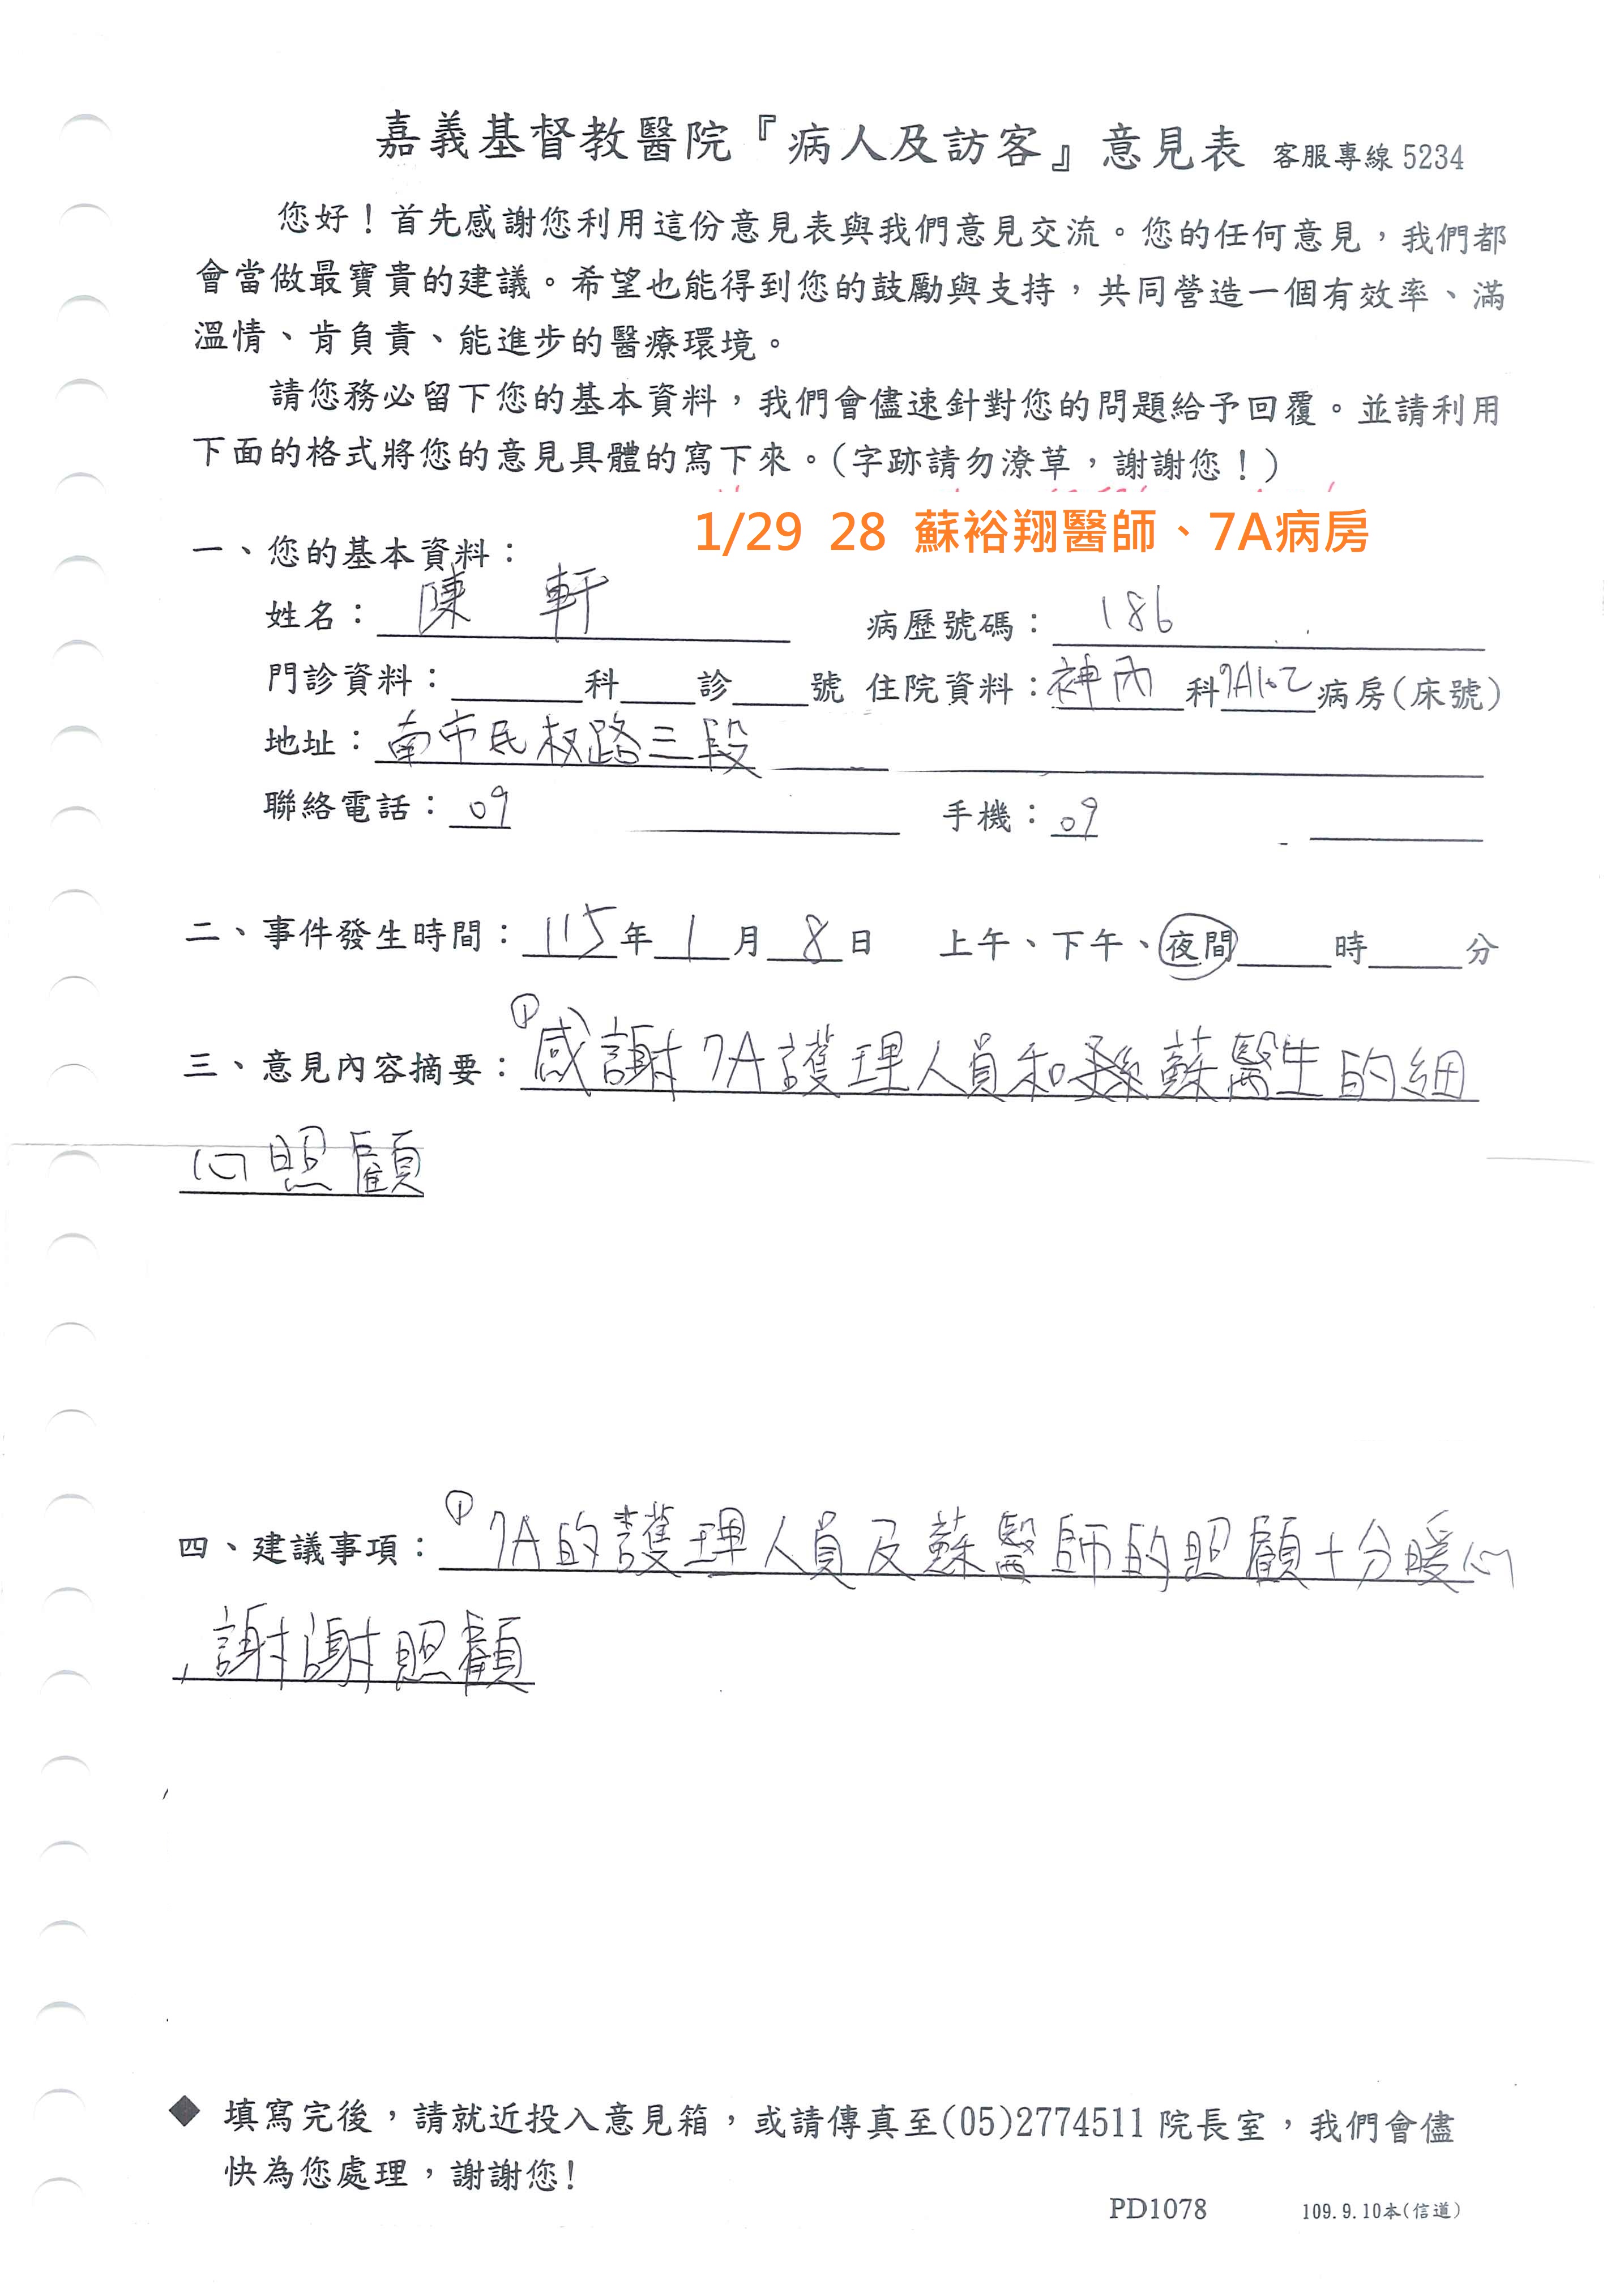 嘉義基督教醫院『病人及訪客』意見表 客服專線 5234
您好！首先感謝您利用這份意見表與我們意見交流。您的任何意見，我們都
會當做最寶貴的建議。希望也能得到您的鼓勵與支持，共同營造一個有效率、滿
溫情、肯負責、能進步的醫療環境。
請您務必留下您的基本資料，我們會儘速針對您的問題給予回覆。並請利用
下面的格式將您的意見具體的寫下來。(字跡請勿潦草，謝謝您！)
1/29 28 蘇裕翔醫師、7A病房
一、您的基本資料：
姓名： 陳 軒 病歷號碼： 186
門診資料： 科 診 號 住院資料： 神內 科 病房(床號)
地址： 南市民权路三段
聯絡電話： 09 手機： 09
二、事件發生時間： 115 年 1 月 8 日 上午、下午、夜間 時 分
三、意見內容摘要： ① 感謝7A護理人員和蘇醫生的細
心照顧
四、建議事項： ① 7A的護理人員及蘇醫師的照顧十分暖心
，謝謝照顧
◆ 填寫完後，請就近投入意見箱，或請傳真至(05)2774511 院長室，我們會儘
快為您處理，謝謝您!
PD1078 109.9.10本(信道)